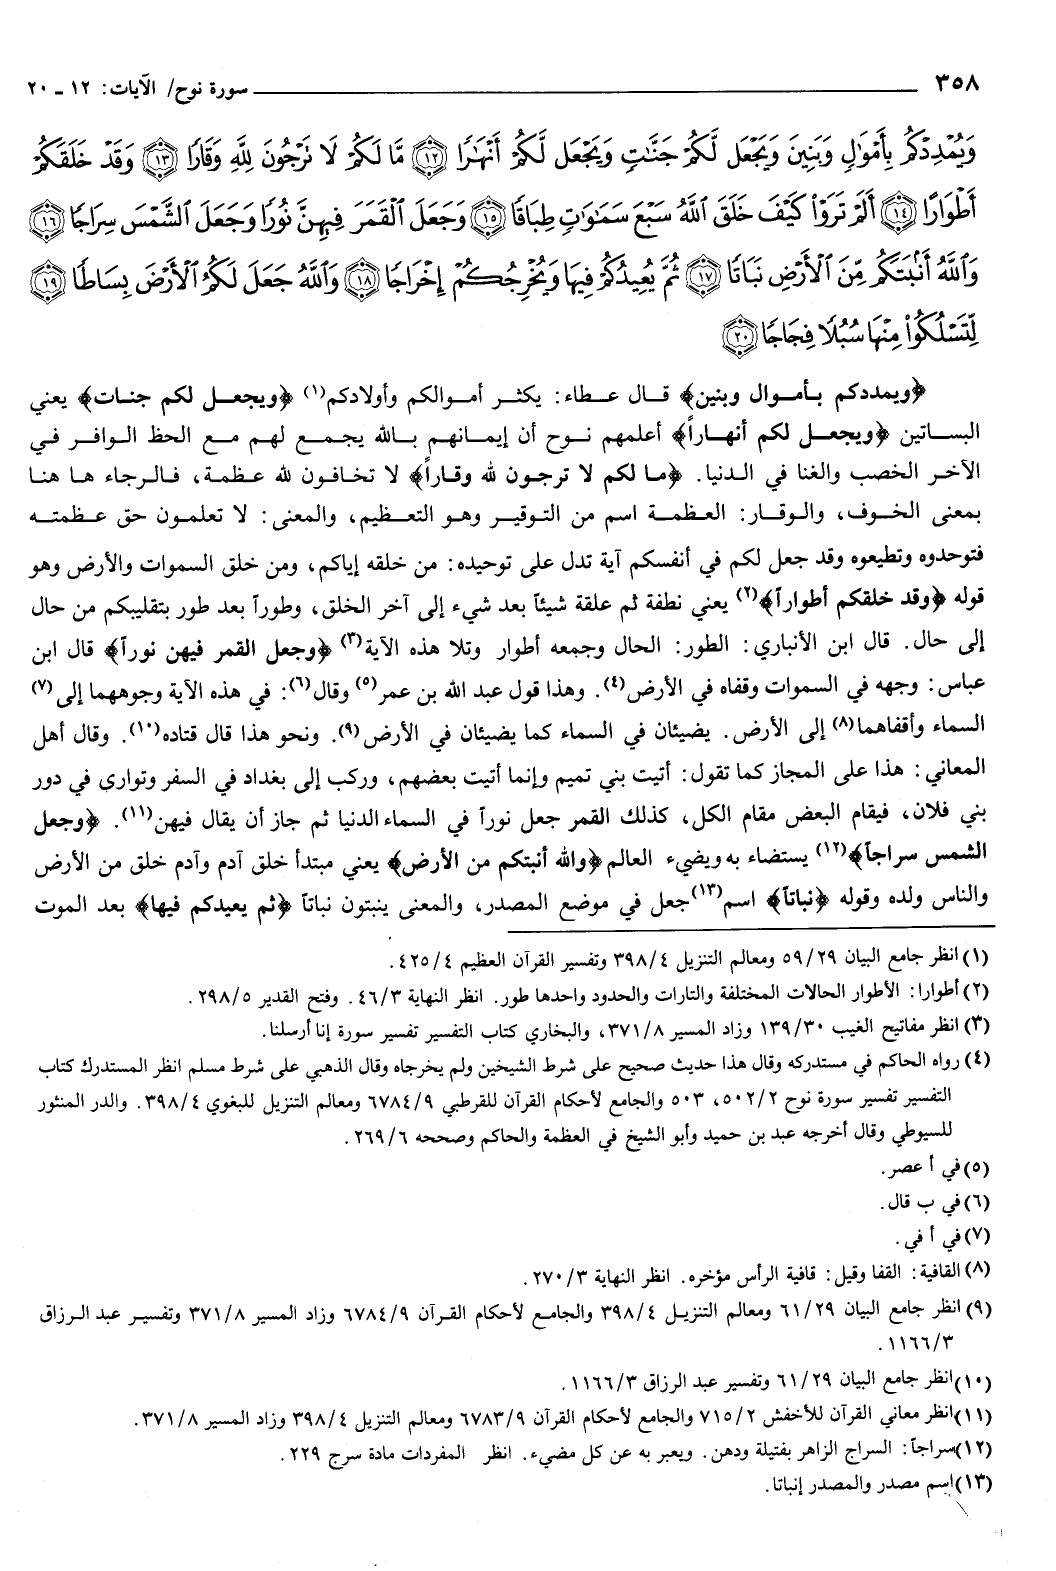 ٣٥٨ سورة نوح/ الآيات: ١٢ ـ ٢٠
وَيُمْدِدْكُم بِأَمْوَٰلٍ وَبَنِينَ وَيَجْعَل لَّكُمْ جَنَّـٰتٍ وَيَجْعَل لَّكُمْ أَنْهَـٰرًا ﴿١٢﴾ مَّا لَكُمْ لَا نَرْجُونَ لِلَّهِ وَقَارًا ﴿١٣﴾ وَقَدْ خَلَقَكُمْ
أَطْوَارًا ﴿١٤﴾ أَلَمْ تَرَوْا۟ كَيْفَ خَلَقَ ٱللَّهُ سَبْعَ سَمَـٰوَٰتٍ طِبَاقًا ﴿١٥﴾ وَجَعَلَ ٱلْقَمَرَ فِيهِنَّ نُورًا وَجَعَلَ ٱلشَّمْسَ سِرَاجًا ﴿١٦﴾
وَٱللَّهُ أَنۢبَتَكُم مِّنَ ٱلْأَرْضِ نَبَاتًا ﴿١٧﴾ ثُمَّ يُعِيدُكُمْ فِيهَا وَيُخْرِجُكُمْ إِخْرَاجًا ﴿١٨﴾ وَٱللَّهُ جَعَلَ لَكُمُ ٱلْأَرْضَ بِسَاطًا ﴿١٩﴾
لِّتَسْلُكُوا۟ مِنْهَا سُبُلًا فِجَاجًا ﴿٢٠﴾
﴿ويمددكم بأموال وبنين﴾ قال عطاء: يكثر أموالكم وأولادكم(١) ﴿ويجعل لكم جنات﴾ يعني
البساتين ﴿ويجعل لكم أنهاراً﴾ أعلمهم نوح أن إيمانهم بالله يجمع لهم مع الحظ الوافر في
الآخر الخصب والغنا في الدنيا. ﴿ما لكم لا ترجون لله وقاراً﴾ لا تخافون لله عظمة، فالرجاء ها هنا
بمعنى الخوف، والوقار: العظمة اسم من التوقير وهو التعظيم، والمعنى: لا تعلمون حق عظمته
فتوحدوه وتطيعوه وقد جعل لكم في أنفسكم آية تدل على توحيده: من خلقه إياكم، ومن خلق السموات والأرض وهو
قوله ﴿وقد خلقكم أطواراً﴾(٢) يعني نطفة ثم علقة شيئاً بعد شيء إلى آخر الخلق، وطوراً بعد طور بتقليبكم من حال
إلى حال. قال ابن الأنباري: الطور: الحال وجمعه أطوار وتلا هذه الآية(٣) ﴿وجعل القمر فيهن نوراً﴾ قال ابن
عباس: وجهه في السموات وقفاه في الأرض(٤). وهذا قول عبد الله بن عمر(٥) وقال(٦): في هذه الآية وجوههما إلى(٧)
السماء وأقفاهما(٨) إلى الأرض. يضيئان في السماء كما يضيئان في الأرض(٩). ونحو هذا قال قتاده(١٠). وقال أهل
المعاني: هذا على المجاز كما تقول: أتيت بني تميم وإنما أتيت بعضهم، وركب إلى بغداد في السفر وتواري في دور
بني فلان، فيقام البعض مقام الكل، كذلك القمر جعل نوراً في السماء الدنيا ثم جاز أن يقال فيهن(١١). ﴿وجعل
الشمس سراجاً﴾(١٢) يستضاء به ويضيء العالم ﴿والله أنبتكم من الأرض﴾ يعني مبتدأ خلق آدم وآدم خلق من الأرض
والناس ولده وقوله ﴿نباتاً﴾ اسم(١٣) جعل في موضع المصدر، والمعنى ينبتون نباتاً ﴿ثم يعيدكم فيها﴾ بعد الموت
(١) انظر جامع البيان ٥٩/٢٩ ومعالم التنزيل ٣٩٨/٤ وتفسير القرآن العظيم ٤٢٥/٤.
(٢) أطوارا: الأطوار الحالات المختلفة والتارات والحدود واحدها طور. انظر النهاية ٤٦/٣. وفتح القدير ٢٩٨/٥.
(٣) انظر مفاتيح الغيب ١٣٩/٣٠ وزاد المسير ٣٧١/٨، والبخاري كتاب التفسير تفسير سورة إنا أرسلنا.
(٤) رواه الحاكم في مستدركه وقال هذا حديث صحيح على شرط الشيخين ولم يخرجاه وقال الذهبي على شرط مسلم انظر المستدرك كتاب
التفسير تفسير سورة نوح ٥٠٢/٢، ٥٠٣ والجامع لأحكام القرآن للقرطبي ٦٧٨٤/٩ ومعالم التنزيل للبغوي ٣٩٨/٤. والدر المنثور
للسيوطي وقال أخرجه عبد بن حميد وأبو الشيخ في العظمة والحاكم وصححه ٢٦٩/٦.
(٥) في أ عصر.
(٦) في ب قال.
(٧) في أ في.
(٨) القافية: القفا وقيل: قافية الرأس مؤخره. انظر النهاية ٢٧٠/٣.
(٩) انظر جامع البيان ٦١/٢٩ ومعالم التنزيل ٣٩٨/٤ والجامع لأحكام القرآن ٦٧٨٤/٩ وزاد المسير ٣٧١/٨ وتفسير عبد الرزاق
١١٦٦/٣.
(١٠) انظر جامع البيان ٦١/٢٩ وتفسير عبد الرزاق ١١٦٦/٣.
(١١) انظر معاني القرآن للأخفش ٧١٥/٢ والجامع لأحكام القرآن ٦٧٨٣/٩ ومعالم التنزيل ٣٩٨/٤ وزاد المسير ٣٧١/٨.
(١٢) سراجاً: السراج الزاهر بفتيلة ودهن. ويعبر به عن كل مضيء. انظر المفردات مادة سرج ٢٢٩.
(١٣) اسم مصدر والمصدر إنباتا.